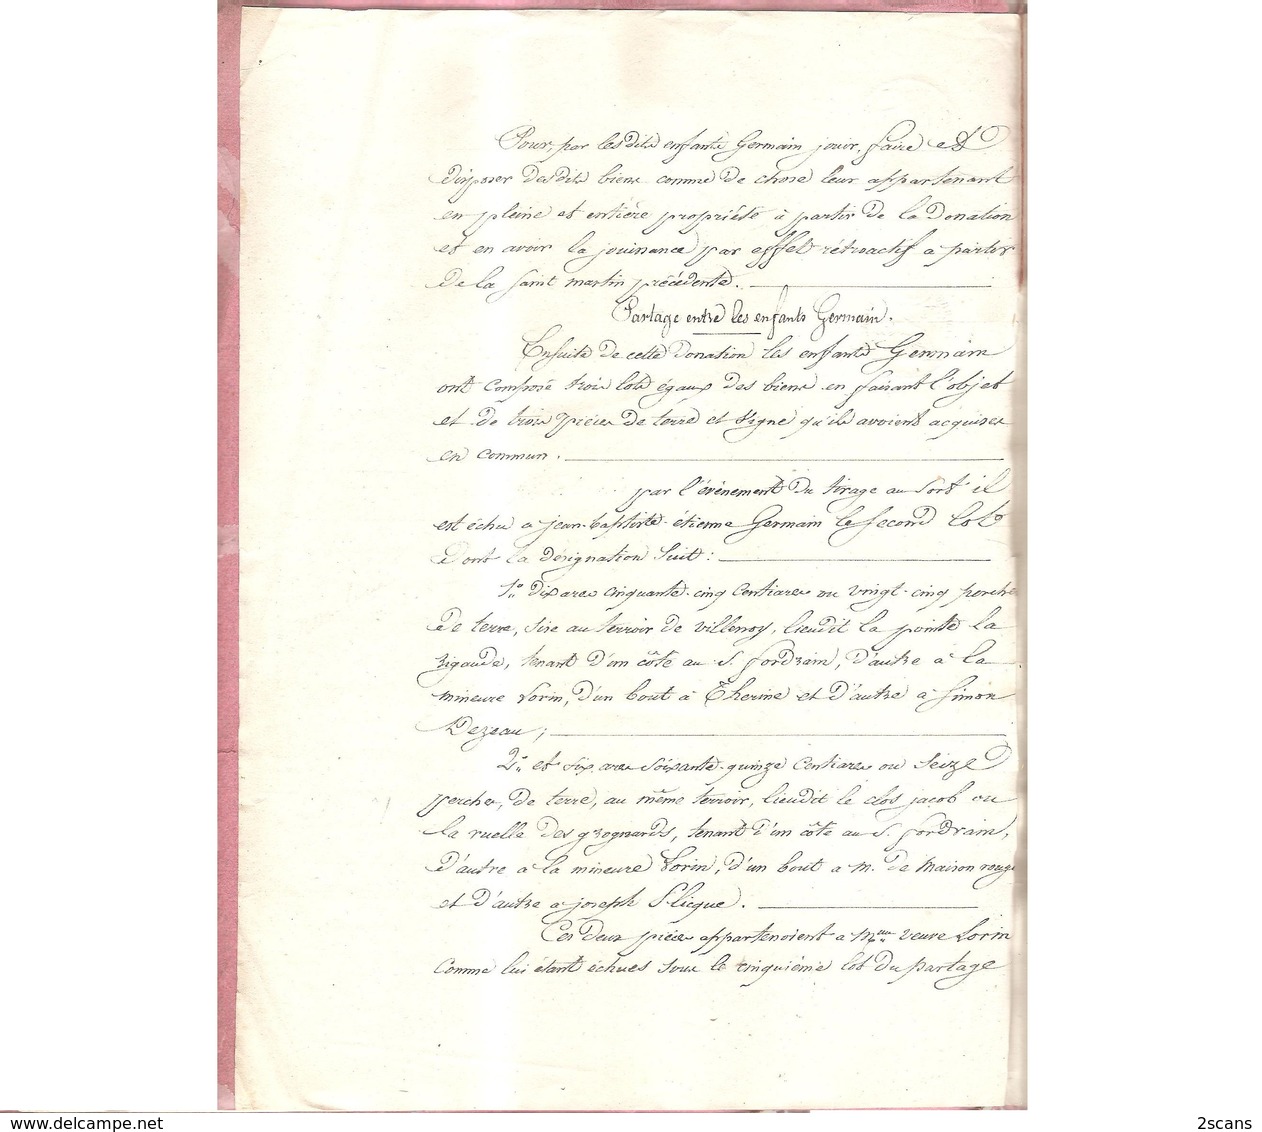 Pour, par lesdits enfants Germain jouir, faire et
disposer desdits biens comme de chose leur appartenant
en pleine et entière propriété à partir de la Donation
et en avoir la jouissance par effet rétroactif a partir
de la saint martin précédente.
Partage entre les enfants Germain.
Ensuite de cette Donation les enfants Germain
ont composé trois lots égaux des biens en faisant l'objet
et de trois pièces de terre et Vigne qu'ils avoient acquises
en commun.
par l'événement du tirage au sort il
est échu a jean-baptiste-étienne Germain le second lot
dont la désignation suit :
1° dix ares cinquante-cinq centiares ou vingt-cinq perches
de terre, sise au terroir de villenoy, lieudit la pointe la
rigaude, tenant d'un côté au S. fordrain, d'autre à la
mineure Lorin, d'un bout à Therine et d'autre à Simon
Dezeau ;
2° et six ares soixante-quinze centiares ou seize
perches, de terre, au même terroir, lieudit le clos jacob ou
la ruelle des grognards, tenant d'un côté au S. fordrain,
d'autre a la mineure Lorin, d'un bout a M. de Maison rouge
et d'autre a joseph Slicque.
Ces deux pièces appartenoient a Mme veuve Lorin
comme lui étant échues sous le cinquième lot du partage
2scans